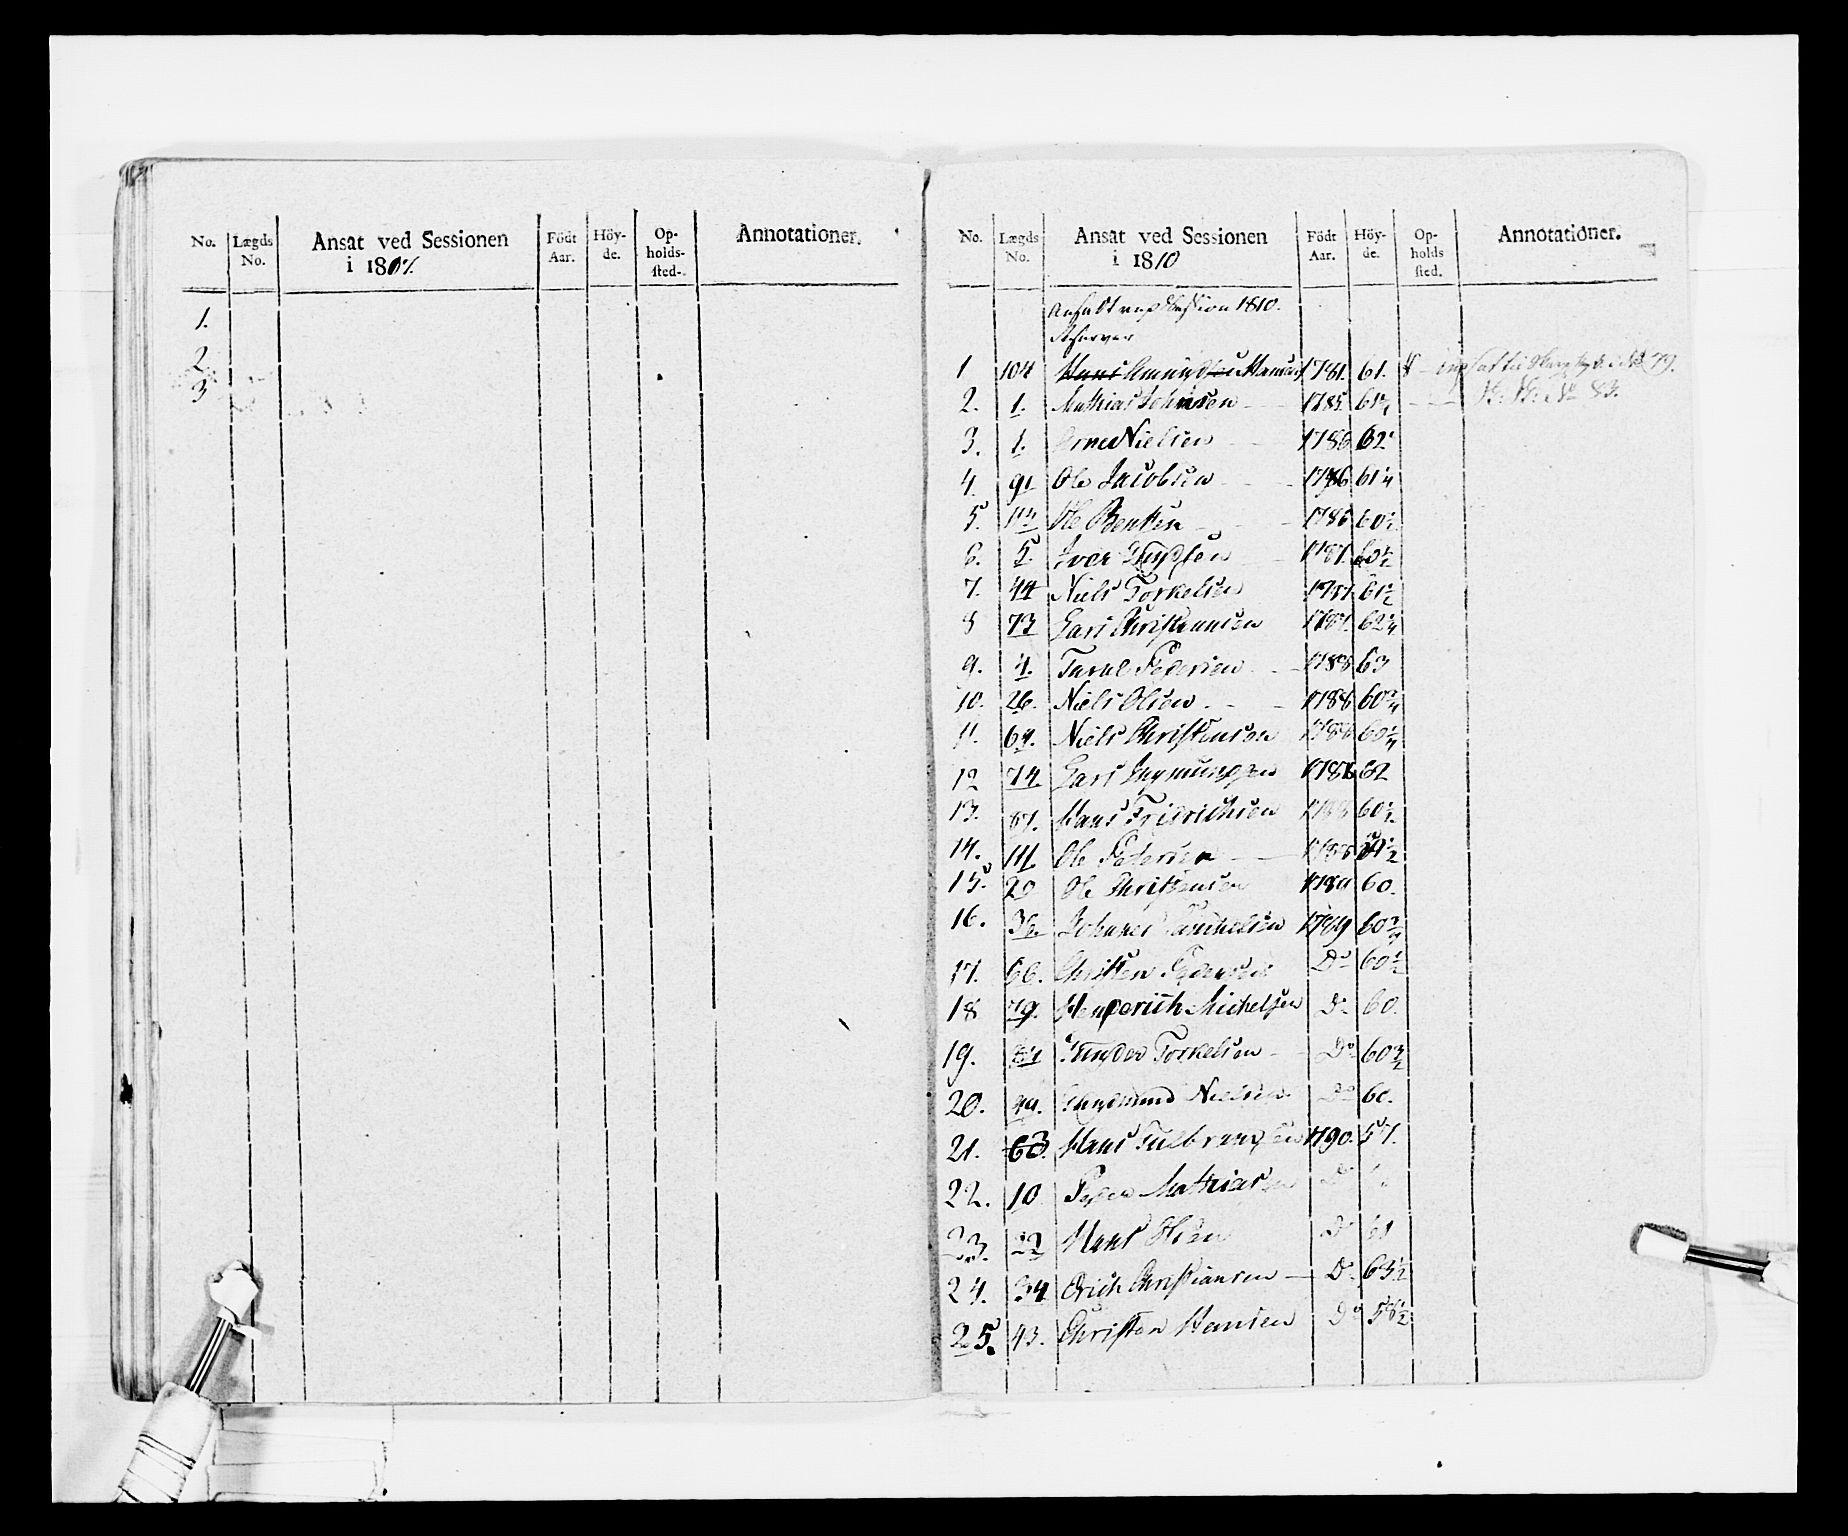 No. Lægds No. Ansat ved Sessionen i 180 Födt Aar. Höy-de. Op-holds-sted. Annotationer.
1.
2.
3
No. Lægds No. Ansat ved Sessionen i 1810 Födt Aar. Höy-de. Op-holds sted. Annotationer.
Ansadt ved Session 1810.
Reserver
1 104 Hans Amundsen 1781. 61.
2. 1. Mathias Johnsen 1785 61½
3. 1. Arne Nielsen 1786 62
4. 91 Ole Jacobsen 1786 61¼
5. Ole Bentsen 1786 60½
6. 5 Iver Knudsen 1787. 60½
7. 44 Niels Torkelsen 1787 61½
8 73 Lars Christiansen 1787. 62¼
9. 4. Taral Pedersen 1788 63
10. 26. Niels Olsen 1788 60¾
11. 64. Niels Christensen 1788 60¼
12 74. Lars Ingmundsen 1788 62
13. 87. Hans Fridrichsen 1788 60½
14. 111. Ole Pedersen 1788
15. 20 Ole Christensen 1789 60.
16. 36. Johannes 1789 60¾
17. 66. Christen Pedersen Do 60½
18 79. Henderich Michelsen Do 60.
19. 84 Gunder Torkelsen Do 60
20. 99. Nielsen Do 60.
21. 63. Hans Gulbrandsen 1790. 57.
22. 10 Peder Mathiasen Do
23. 22 Hans Olsen Do 61
24. 34 Erich Christiansen Do 63½
25. 43. Christen Hansen Do 58½